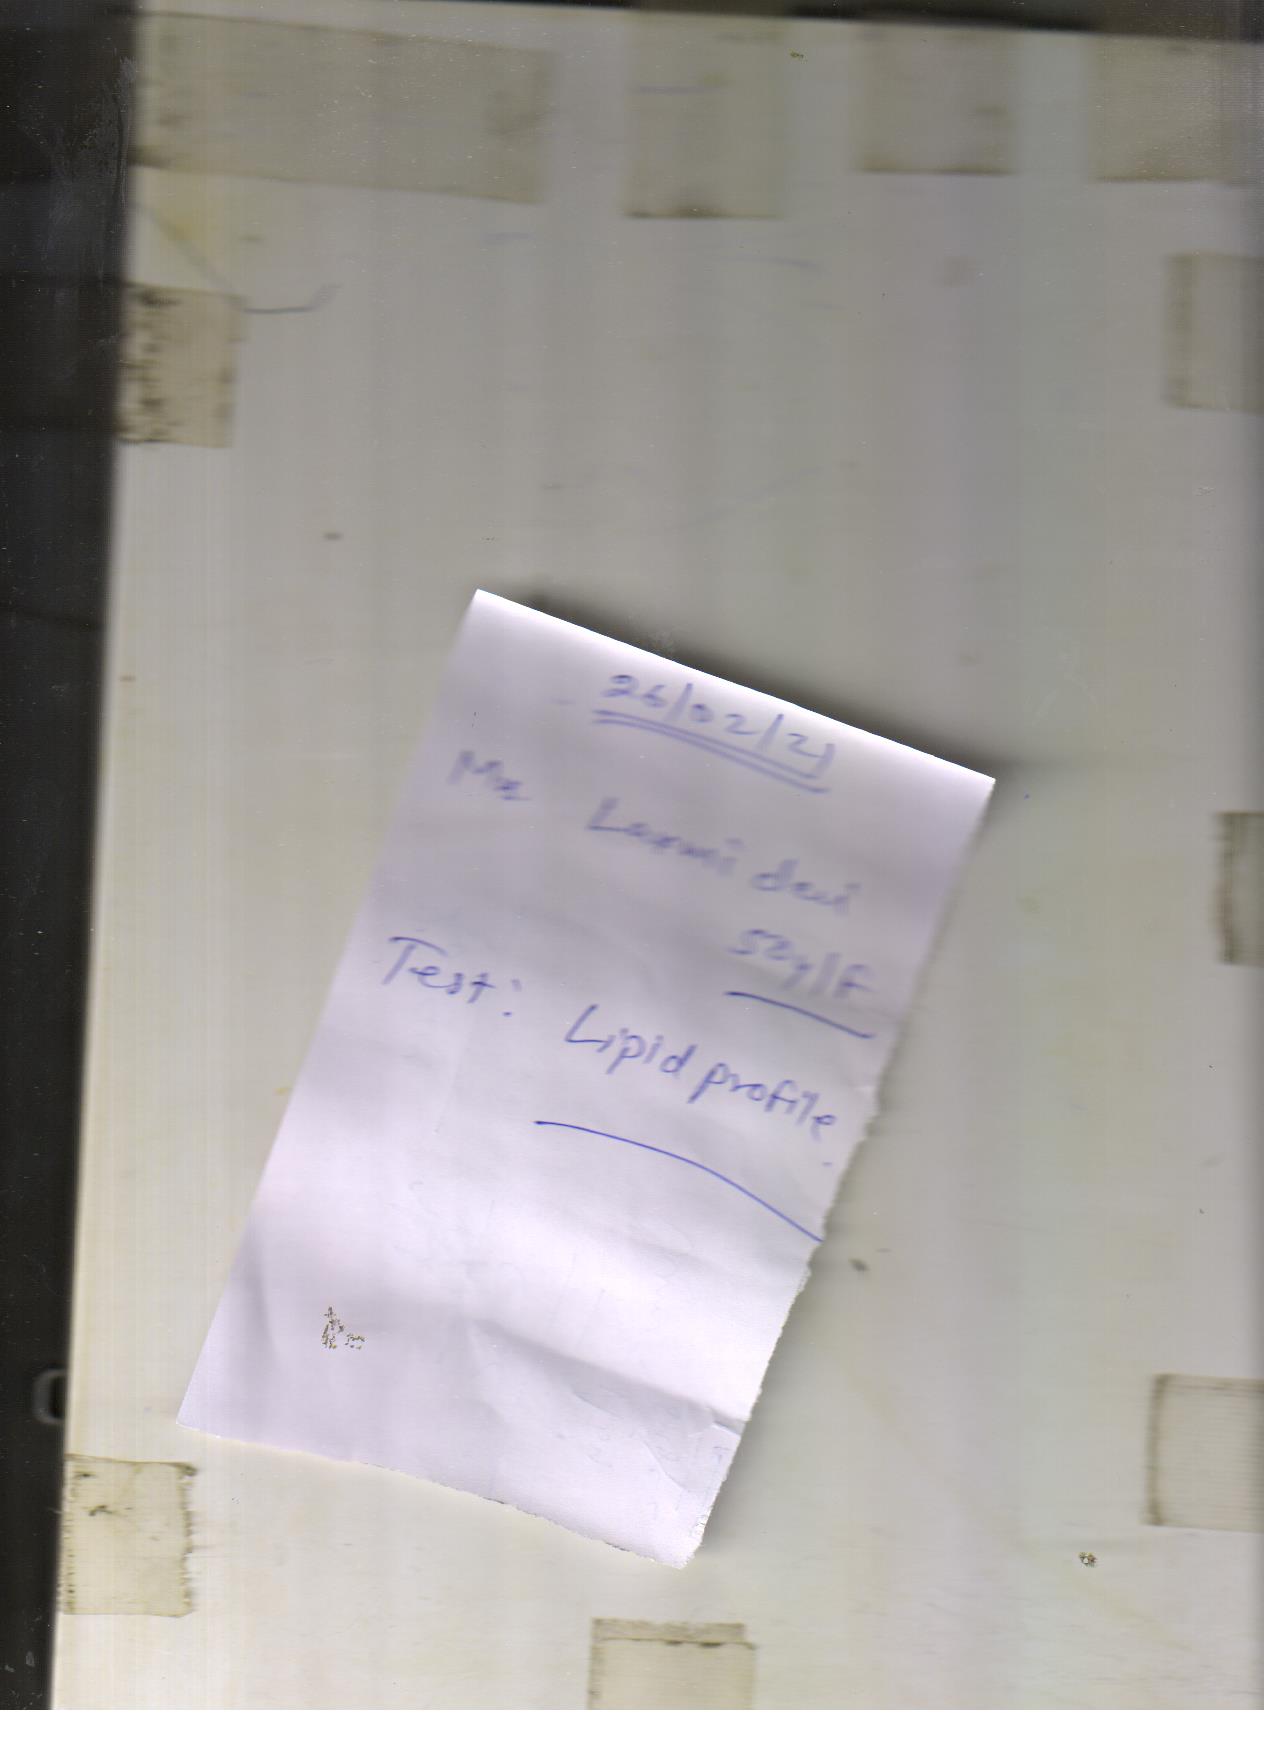 26/02/21
Mrs Laxmi devi
52y/F
Test: Lipid profile